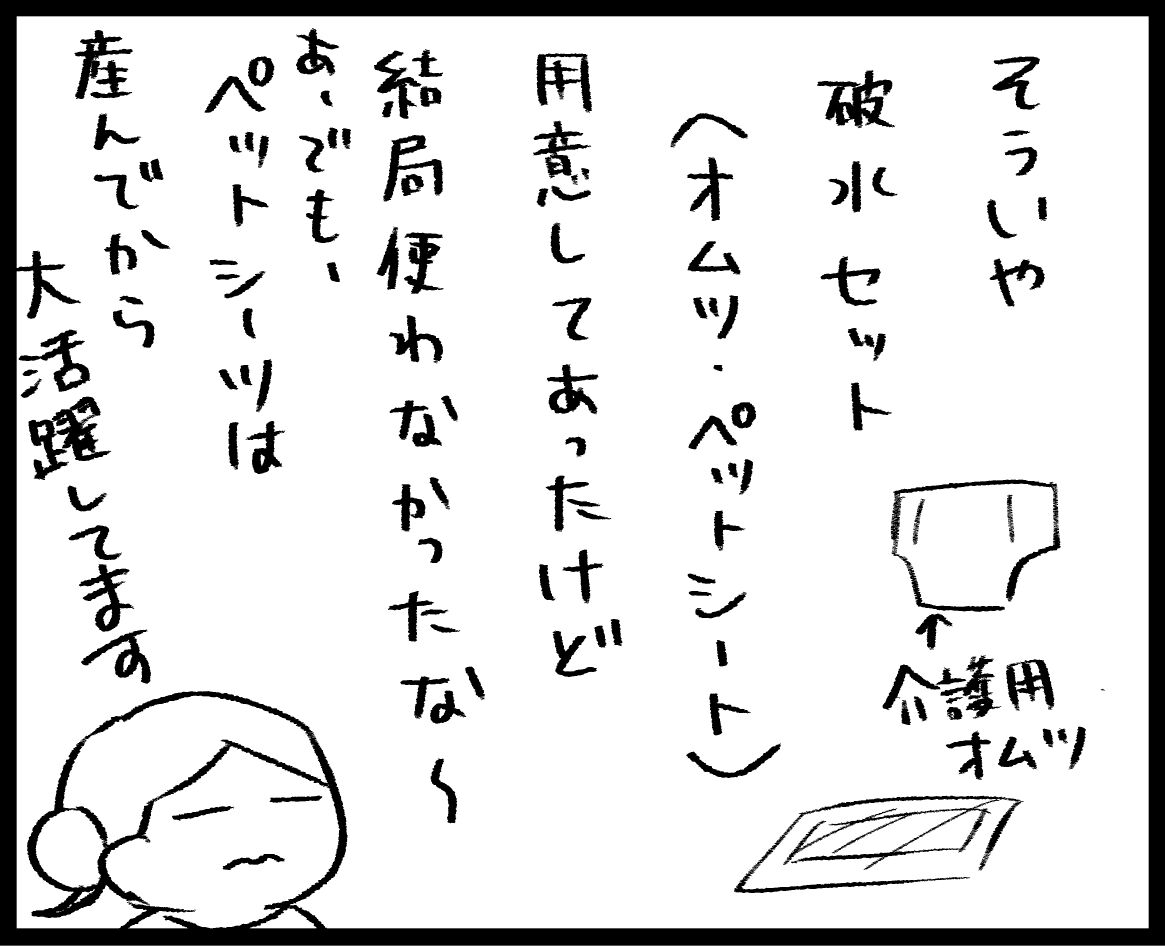 そういや
破水セット
(オムツ・ペットシート)
用意してあったけど
結局使わなかったな〜
あ、でも、
ペットシーツは
産んでから
大活躍してます
↑
介護用
オムツ